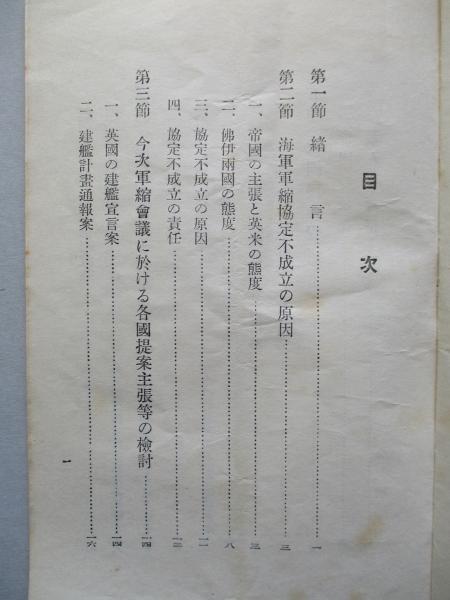 目次
第一節 緒言……………一
第二節 海軍軍縮協定不成立の原因……………三
一、帝國の主張と英米の態度……………三
二、佛伊兩國の態度……………八
三、協定不成立の原因……………一一
四、協定不成立の責任……………一三
第三節 今次軍縮會議に於ける各國提案主張等の檢討……………一四
一、英國の建艦宣言案……………一四
二、建艦計畫通報案……………一六
一